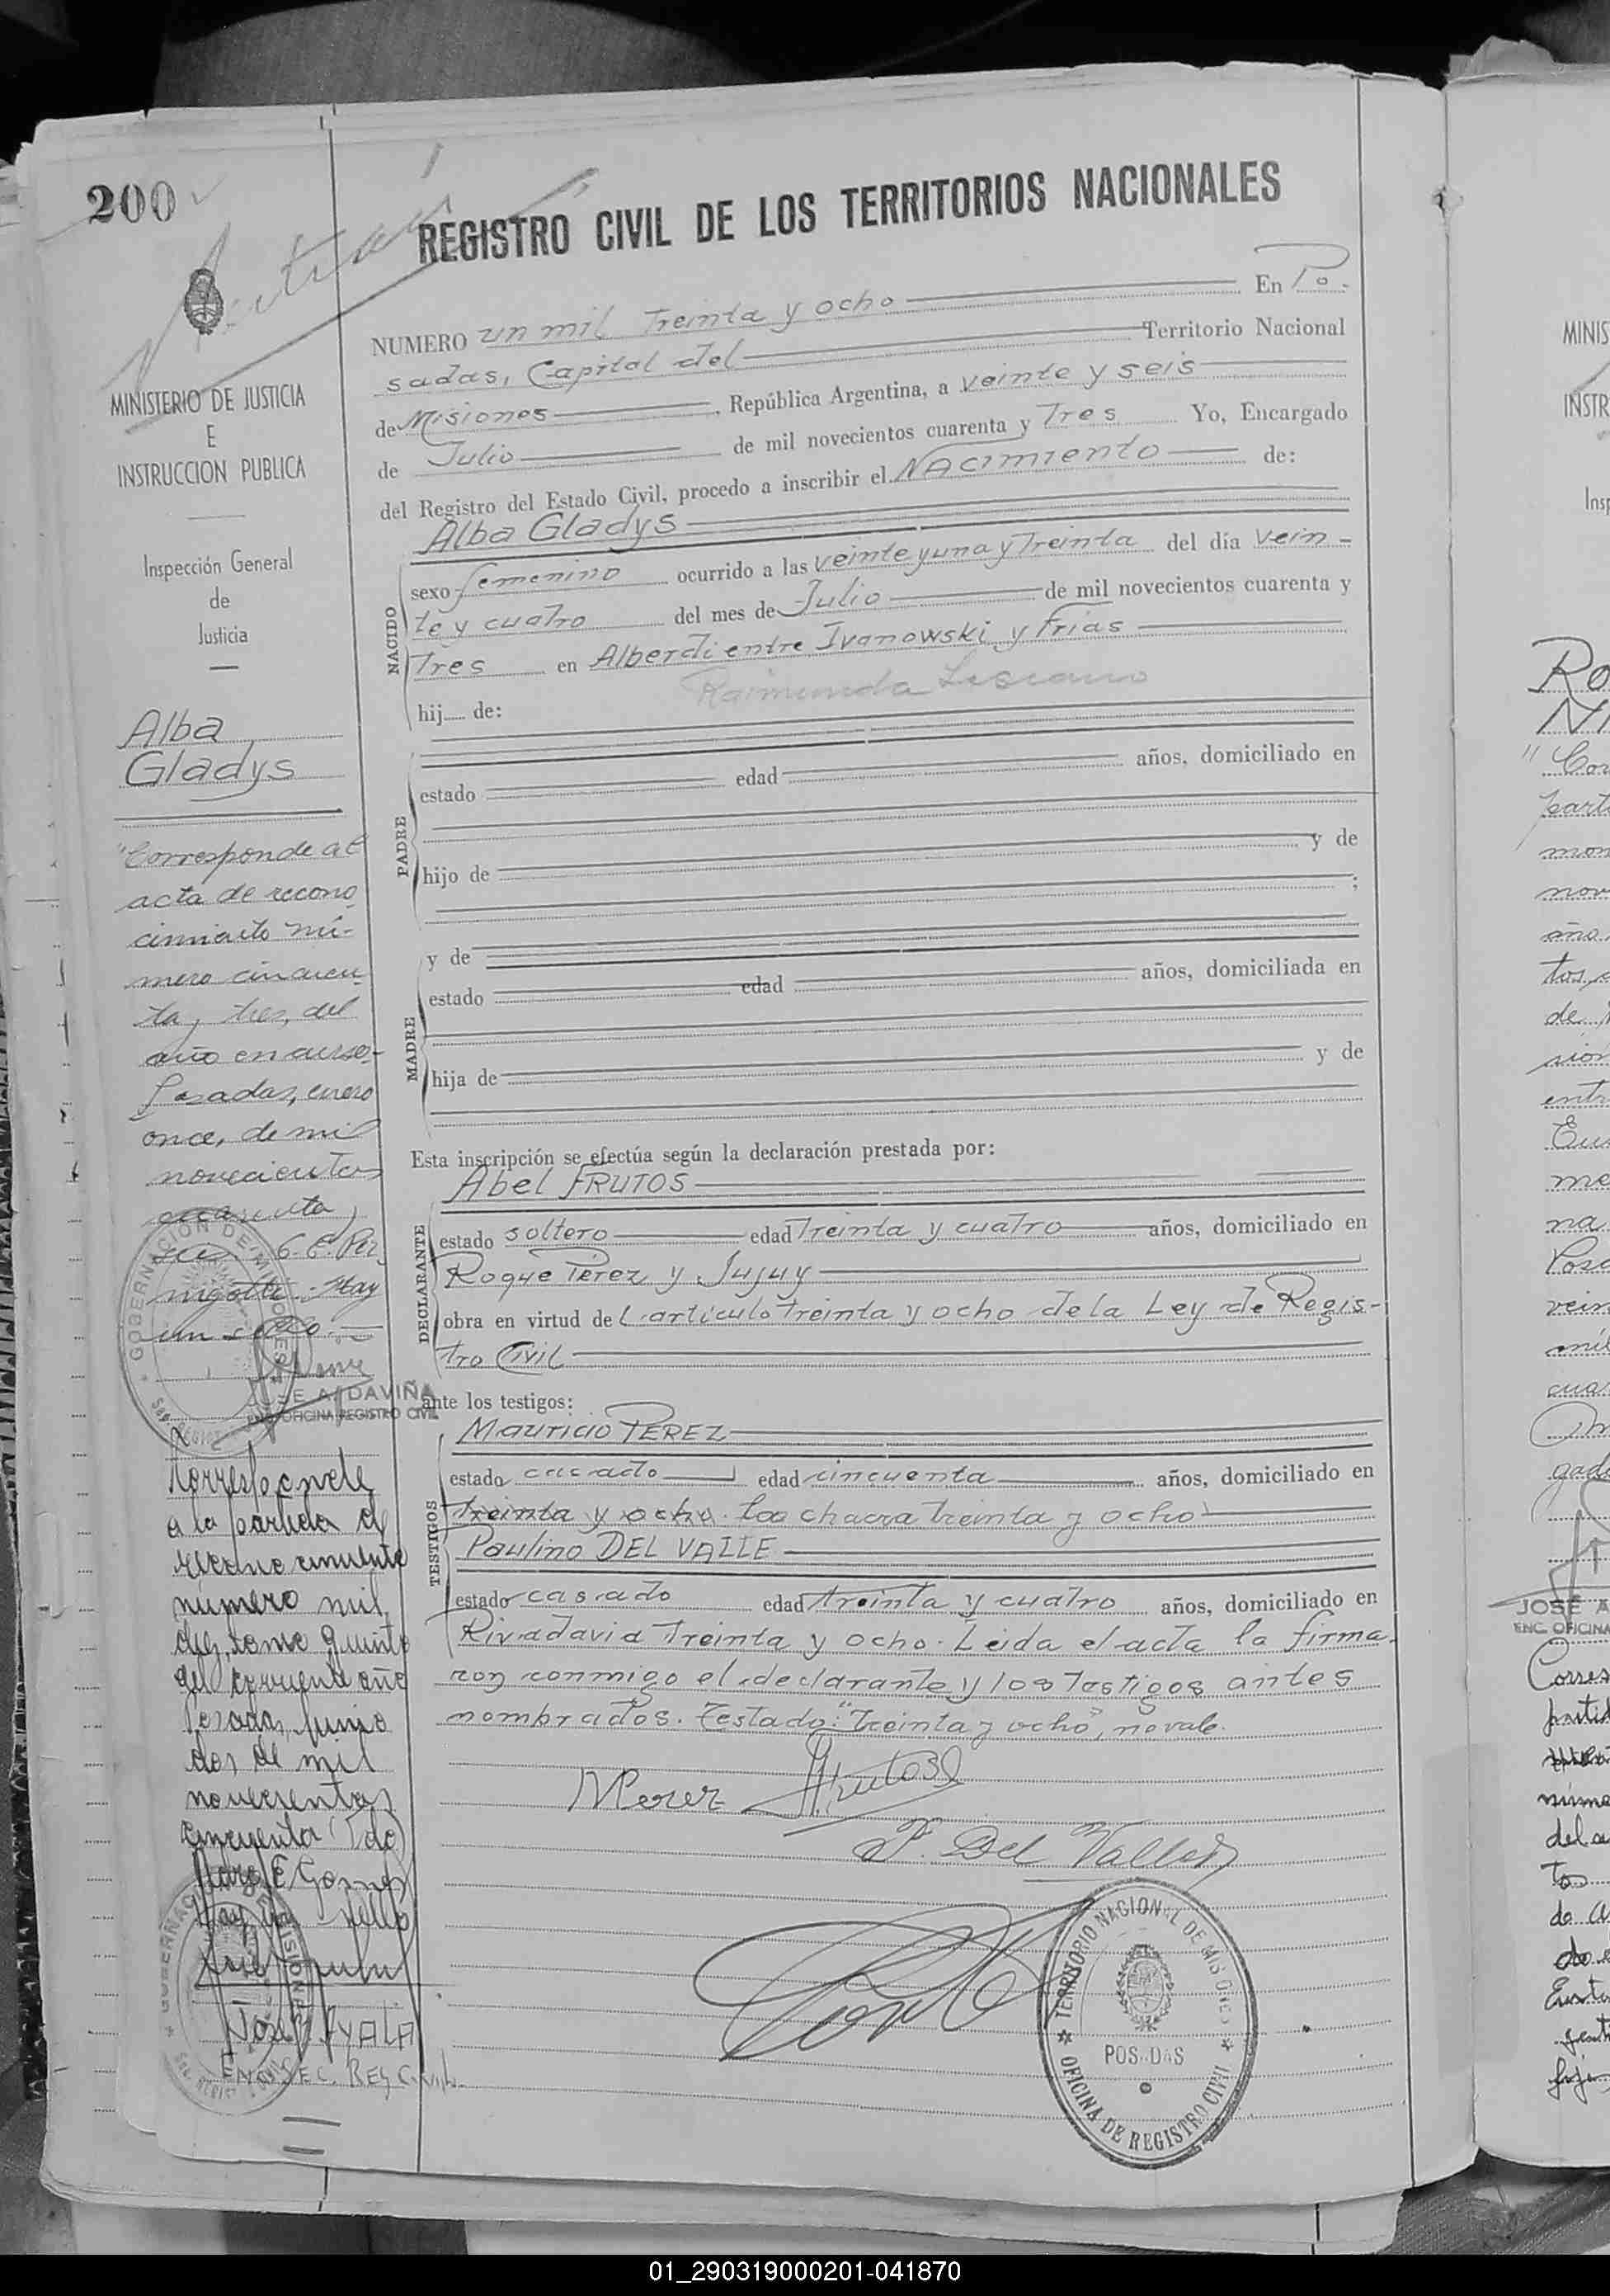 200
REGISTRO CIVIL DE LOS TERRITORIOS NACIONALES
NUMERO un mil Treinta y ocho En Po-
sadas, Capital del Territorio Nacional
de Misiones, República Argentina, a veinte y seis
de Julio de mil novecientos cuarenta y Tres Yo, Encargado
del Registro del Estado Civil, procedo a inscribir el NACIMIENTO de:
Alba Gladys
NACIDO
sexo femenino ocurrido a las veinte y una y Treinta del día vein-
te y cuatro del mes de Julio de mil novecientos cuarenta y
Tres en Alberdi entre Ivanowski y Frias
Raimunda
hij de:
PADRE
estado edad años, domiciliado en
hijo de y de
;
MADRE
y de
estado edad años, domiciliada en
hija de y de
Esta inscripción se efectúa según la declaración prestada por:
DECLARANTE
Abel FRUTOS
estado soltero edad Treinta y cuatro años, domiciliado en
Roque Pérez y Jujuy
obra en virtud del artículo treinta y ocho de la Ley de Regis-
tro Civil
ante los testigos:
TESTIGOS
Mauricio PEREZ
estado casado edad cincuenta años, domiciliado en
treinta y ocho. Loo chacra treinta y ocho
Paulino DEL VALLE
estado casado edad treinta y cuatro años, domiciliado en
Rivadavia Treinta y ocho. Leida el acta la firma
ron conmigo el declarante y los testigos antes
nombrados. Testado: "treinta y ocho", no vale.
MPerez AFrutos
P. Del Valle
TERRITORIO NACIONAL DE MISIONES
POSADAS
OFICINA DE REGISTRO CIVIL
MINISTERIO DE JUSTICIA
E
INSTRUCCION PUBLICA
Inspección General
de
Justicia
Alba
Gladys
"Corresponde al
acta de recono
cimiento nú-
mero cincuen
ta y tres, del
año en curso-
Posadas, enero
once, de mil
novecientos
cuarenta y
seis. G. C. Pe
rigotti. Hay
un sello.
GOBERNACION DE MISIONES
JOSE A. DAVIÑA
ENC. OFICINA REGISTRO CIVIL
Corresponde
a la partida de
reconocimiento
número mil
diez, tomo quinto
del corriente año
Posadas, junio
dos de mil
novecientos
cincuenta (do)
E Gomez
Hay un sello
José AYALA
ENC. SEC. REG. Civil
MINIS
INSTR
Insp
Ro
Ni
"Cor
parti
nov
año
tos,
de
entr
me
na
Posa
vein
mil
cua
gado
JOSE A
ENC. OFICINA
Corres
partid
núme
del a
to
de
01_290319000201-041870